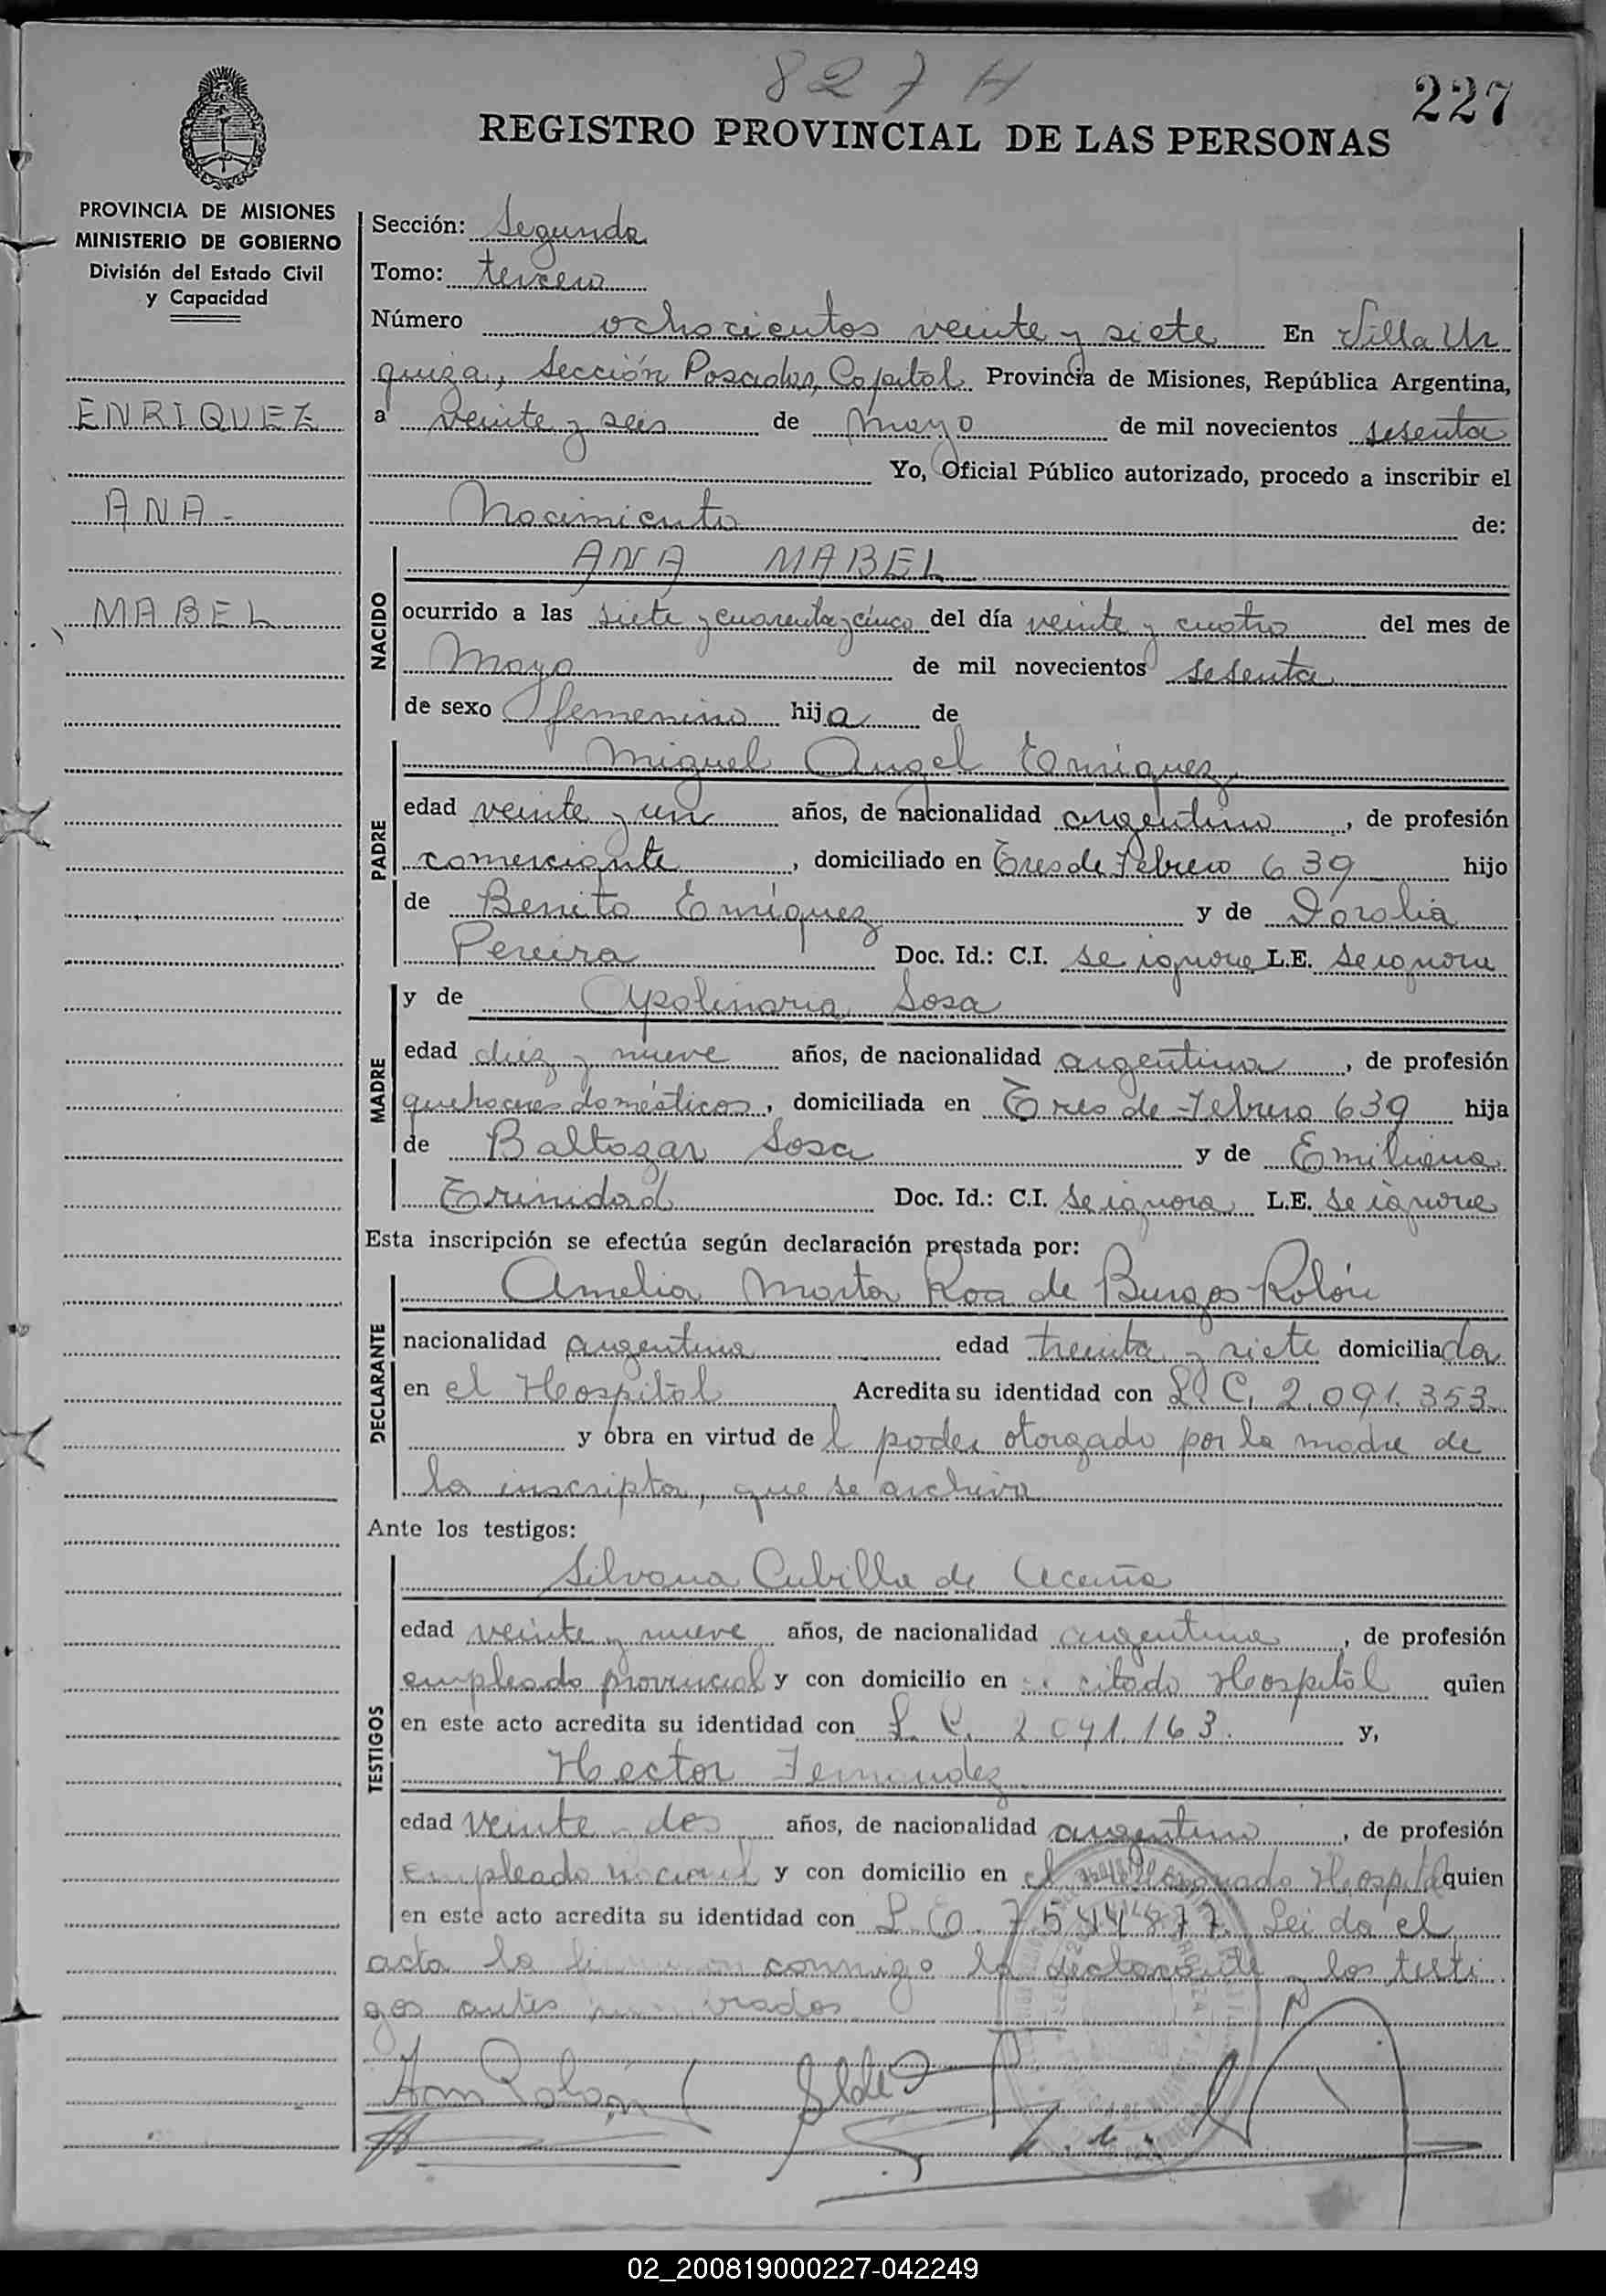 827 H
227
REGISTRO PROVINCIAL DE LAS PERSONAS
PROVINCIA DE MISIONES
MINISTERIO DE GOBIERNO
División del Estado Civil
y Capacidad
ENRIQUEZ
ANA -
MABEL
Sección: Segunda
Tomo: tercero
Número ochocientos veinte y siete En Villa Ur
quiza, Sección Posadas, Capital Provincia de Misiones, República Argentina,
a veinte y seis de Mayo de mil novecientos sesenta
Yo, Oficial Público autorizado, procedo a inscribir el
Nacimiento de:
NACIDO
ANA MABEL
ocurrido a las siete y cuarenta y cinco del día veinte y cuatro del mes de
Mayo de mil novecientos sesenta
de sexo femenino hija de
PADRE
Miguel Angel Enriquez
edad veinte y un años, de nacionalidad argentino, de profesión
comerciante, domiciliado en Tres de Febrero 639 hijo
de Benito Enriquez y de
Pereira Doc. Id.: C.I. se ignora L.E. se ignora
MADRE
y de Apolinaria Sosa
edad diez y nueve años, de nacionalidad argentina, de profesión
quehaceres domésticos, domiciliada en Tres de Febrero 639 hija
de Baltazar Sosa y de Emiliana
Trinidad Doc. Id.: C.I. se ignora L.E. se ignora
Esta inscripción se efectúa según declaración prestada por:
DECLARANTE
Amelia Marta Roa de Burgos Rolón
nacionalidad argentina edad treinta y siete domiciliada
en el Hospital Acredita su identidad con L. C. 2.091.353
y obra en virtud del poder otorgado por la madre de
la inscripta, que se archiva
Ante los testigos:
TESTIGOS
Silvana Cubilla de Acuña
edad veinte y nueve años, de nacionalidad argentina, de profesión
empleada provincial y con domicilio en citado Hospital quien
en este acto acredita su identidad con L. C. 2.091.163. y,
Hector Fernandez
edad veinte dos años, de nacionalidad argentino, de profesión
empleado nacional y con domicilio en el Hospital quien
en este acto acredita su identidad con L. E. 7.544.877. Leida el
acta la conmigo la declarante y los testi
gos antes
02_200819000227-042249